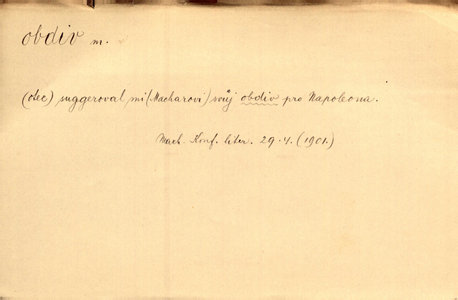 obdiv m.
(otec) suggeroval mi (Macharovi) svůj obdiv pro Napoleona.
Mach. Konf. liter. 29. 4. (1901.)